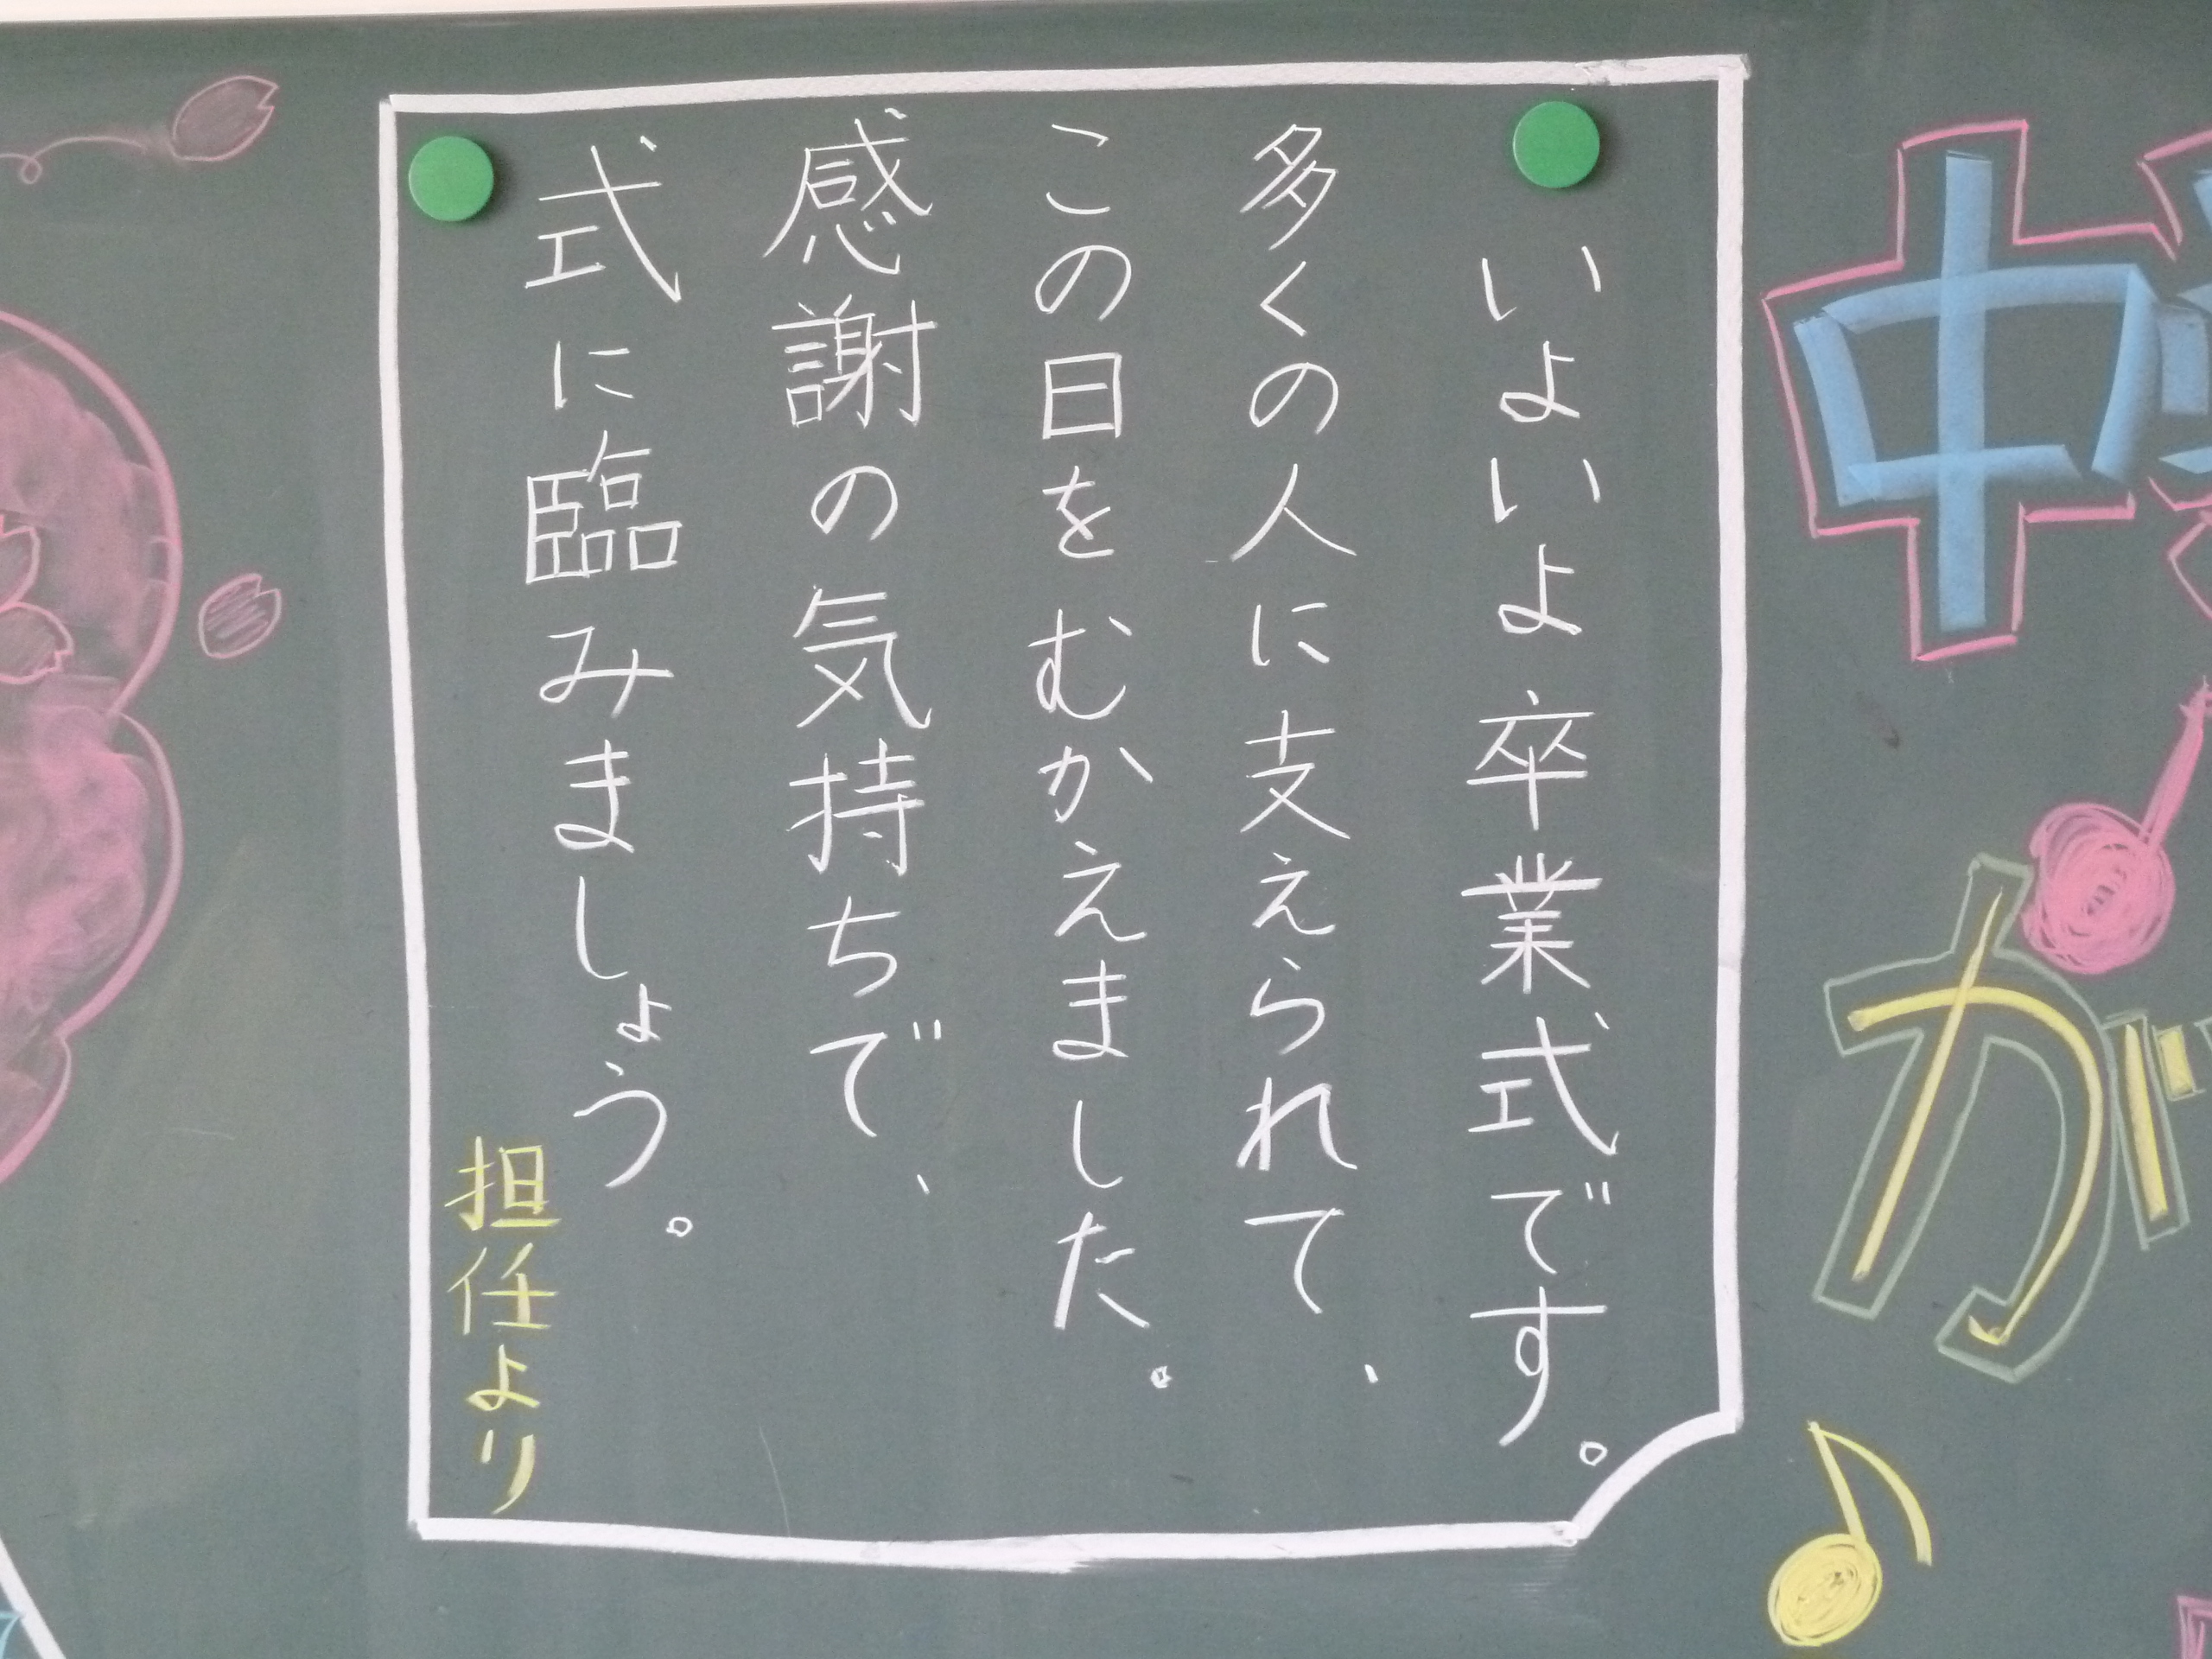 中
が
いよいよ卒業式です。
多くの人に支えられて、
この日をむかえました。
感謝の気持ちで、
式に臨みましょう。
担任より